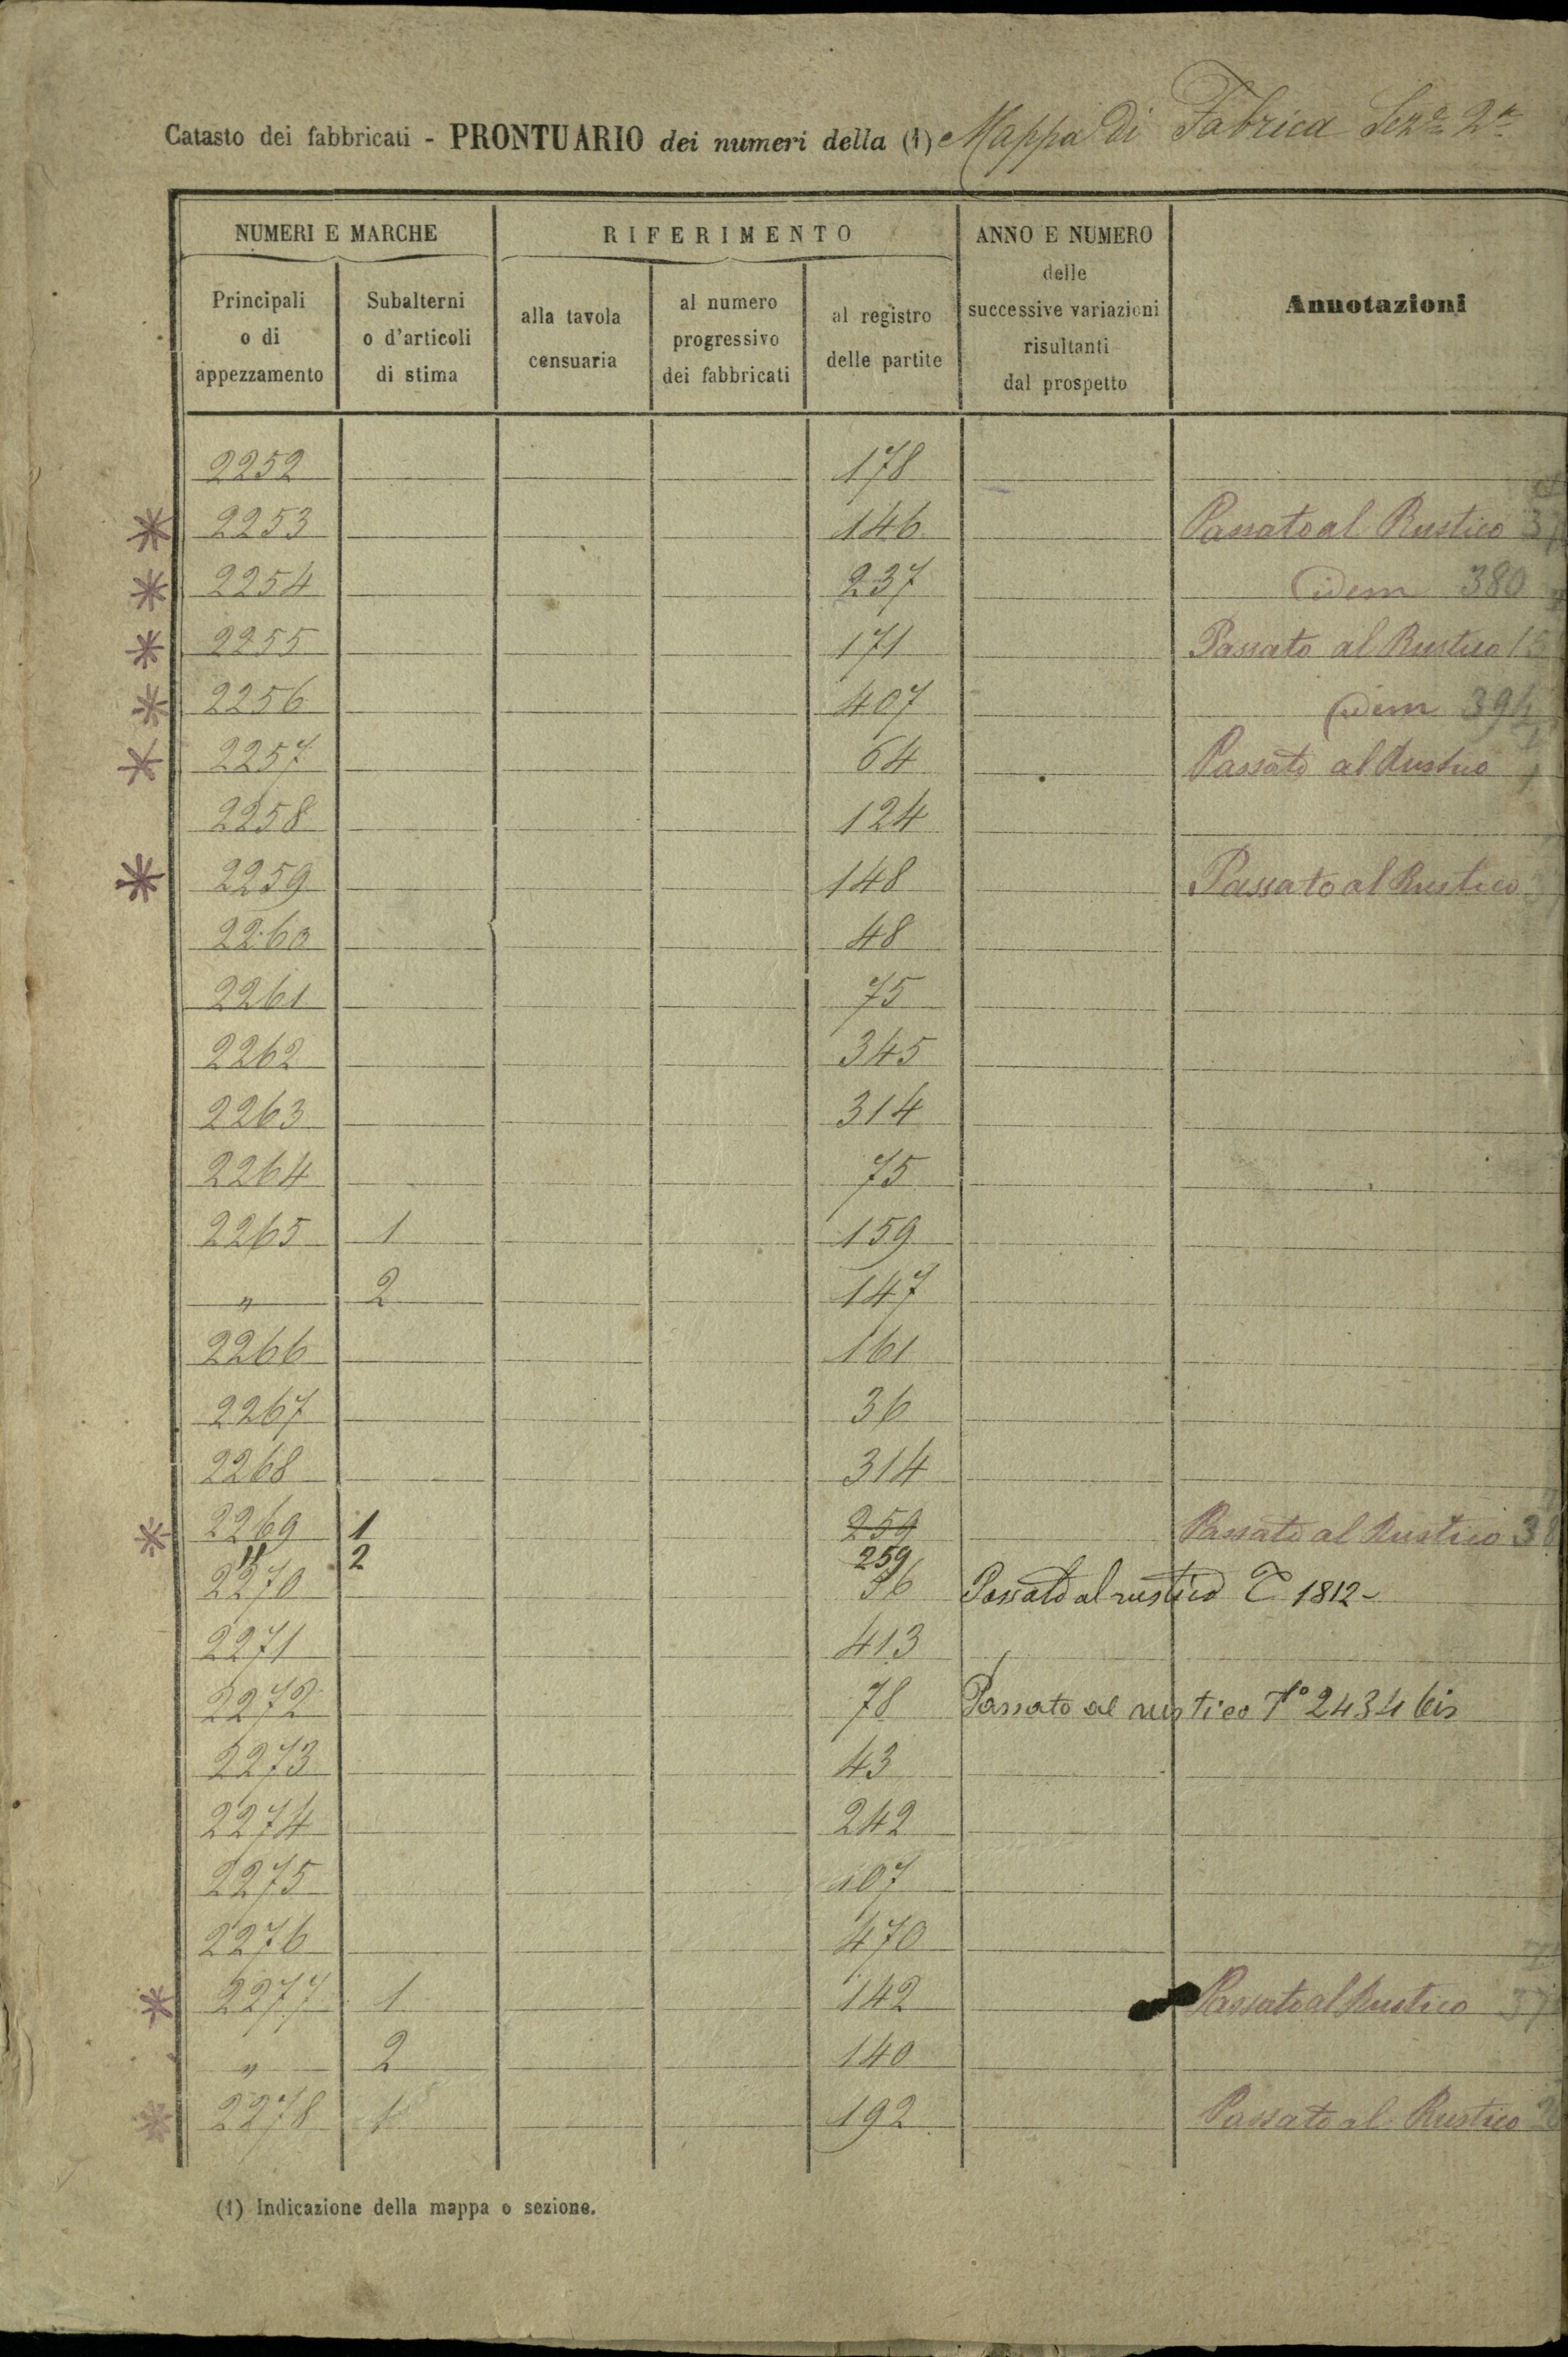 Catasto dei fabbricati - PRONTUARIO dei numeri della (1) Mappa di Fabrica Sez.e 2a
NUMERI E MARCHE
RIFERIMENTO
ANNO E NUMERO
delle
successive variazioni
risultanti
dal prospetto
Annotazioni
Principali
o di
appezzamento
Subalterni
o d'articoli
di stima
alla tavola
censuaria
al numero
progressivo
dei fabbricati
al registro
delle partite
2252 178
* 2253 146 Passato al Rustico
* 2254 237 idem 380
* 2255 171 Passato al Rustico
* 2256 407 idem
* 2257 64 Passato al Rustico
2258 124
* 2259 148 Passato al Rustico
2260 48
2261 75
2262 345
2263 314
2264 75
2265 1 159
" 2 147
2266 161
2267 36
2268 314
* 2269 1 259 Passato al Rustico
" 2 259
2270 36 Passato al rustico T 1812
2271 413
2272 78 Passato al rustico To 2434 bis
2273 43
2274 242
2275 107
2276 470
* 2277 1 142 Passato al Rustico
" 2 140
* 2278 1 192 Passato al Rustico
(1) Indicazione della mappa o sezione.